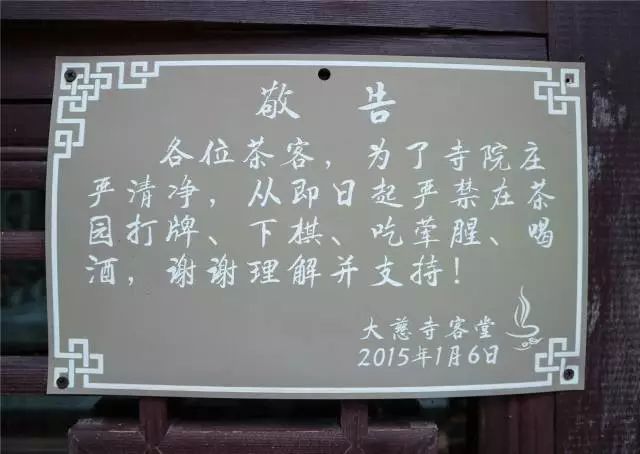 敬告
各位茶客，为了寺院庄
严清净，从即日起严禁在茶
园打牌、下棋、吃荤腥、喝
酒，谢谢理解并支持！
大慈寺客堂
2015年1月6日